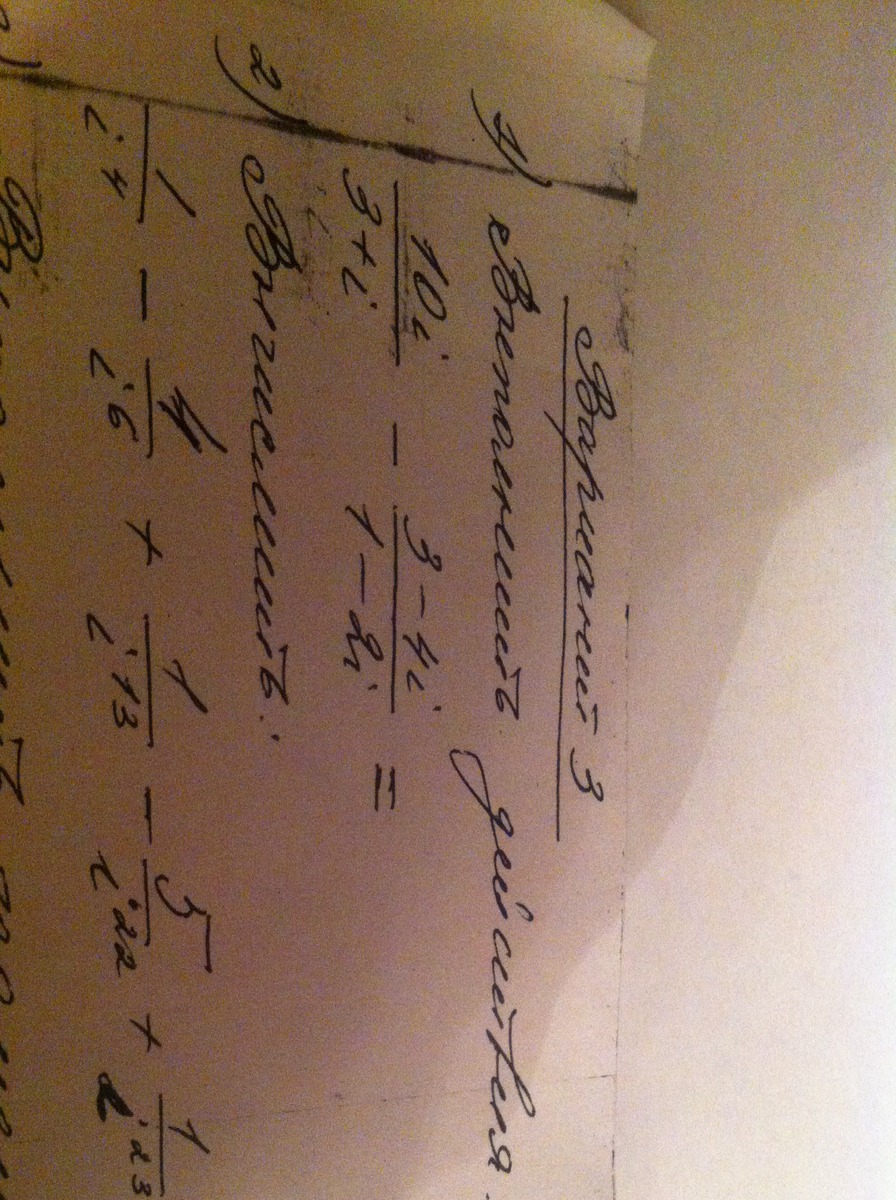 Вариант 3
1) Выполнить действия.
10i/(3+i) - (3-4i)/(1-2i) =
2) Вычислить:
1/i⁴ - 4/i⁶ + 1/i¹³ - 5/i²² + 1/i²³